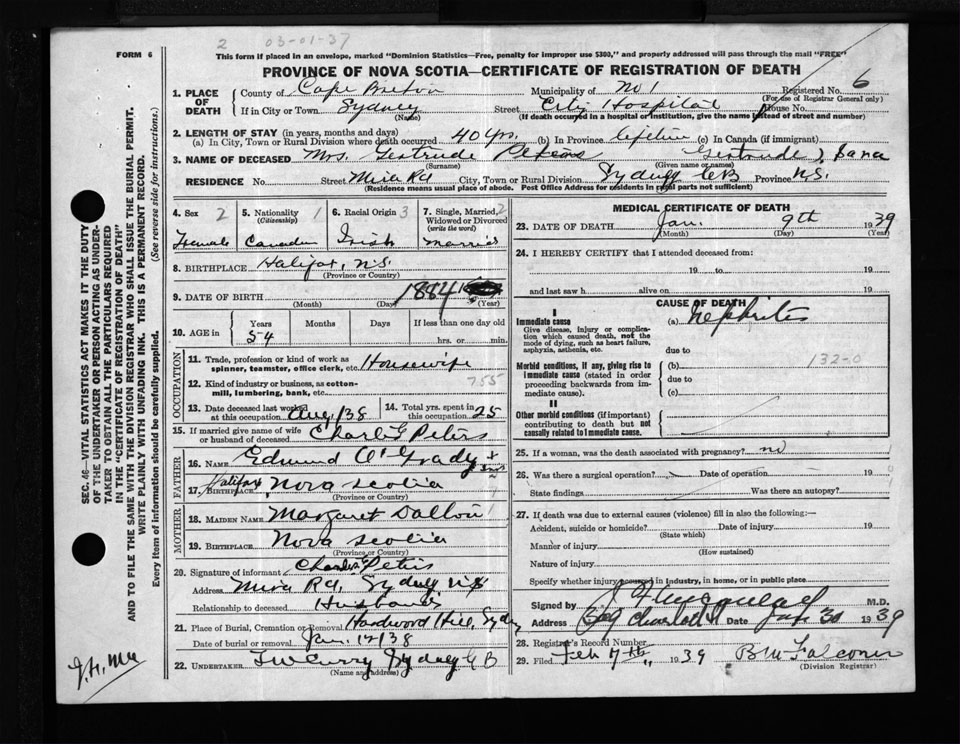 2 03-01-37
FORM 6
This form if placed in an envelope, marked "Dominion Statistics—Free, penalty for improper use $300," and properly addressed will pass through the mail "FREE"
PROVINCE OF NOVA SCOTIA—CERTIFICATE OF REGISTRATION OF DEATH
1. PLACE OF DEATH County of Cape Breton Municipality of No 1 Registered No. 6
(For use of Registrar General only)
If in City or Town Sydney Street City Hospital House No.
(Name) (If death occurred in a hospital or institution, give the name instead of street and number)
2. LENGTH OF STAY (in years, months and days)
(a) In City, Town or Rural Division where death occurred 40 yrs. (b) In Province lifetime (c) In Canada (if immigrant)
3. NAME OF DECEASED Mrs. Gertrude Peters Gertrude
(Surname) (Given name or names)
RESIDENCE No. Street Mira Rd City, Town or Rural Division Sydney CB Province N.S.
(Residence means usual place of abode. Post Office Address for residents in rural parts not sufficient)
4. Sex 2 Female
5. Nationality (Citizenship) 1 Canadian
6. Racial Origin 3 Irish
7. Single, Married, Widowed or Divorced (write the word) 2 Married
8. BIRTHPLACE Halifax, N.S.
(Province or Country)
9. DATE OF BIRTH 1884
(Month) (Day) (Year)
10. AGE in Years 54 Months Days If less than one day old hrs. or min.
OCCUPATION
11. Trade, profession or kind of work as spinner, teamster, office clerk, etc. Housewife
12. Kind of industry or business, as cotton-mill, lumbering, bank, etc. 755
13. Date deceased last worked at this occupation Aug/38
14. Total yrs. spent in this occupation 25
15. If married give name of wife or husband of deceased Charles Peters
FATHER
16. NAME Edmund O'Grady
17. BIRTHPLACE Halifax Nova Scotia
(Province or Country)
MOTHER
18. MAIDEN NAME Margaret Dalton
19. BIRTHPLACE Nova Scotia
(Province or Country)
20. Signature of informant Charles Peters
Address Mira Rd, Sydney N.S.
Relationship to deceased Husband
21. Place of Burial, Cremation or Removal Hardwood Hill, Sydney
Date of burial or removal Jan. 12/38
22. UNDERTAKER T W Curry Sydney C B
(Name and address)
MEDICAL CERTIFICATE OF DEATH
23. DATE OF DEATH Jan. 9th 1939
(Month) (Day) (Year)
24. I HEREBY CERTIFY that I attended deceased from:
19 to 19
and last saw h alive on 19
CAUSE OF DEATH
I
Immediate cause (a) Nephritis
Give disease, injury or complication which caused death, not the mode of dying, such as heart failure, asphyxia, asthenia, etc.
due to
Morbid conditions, if any, giving rise to immediate cause (stated in order proceeding backwards from immediate cause). (b) 132-0
due to
(c)
II
Other morbid conditions (if important) contributing to death but not causally related to immediate cause.
25. If a woman, was the death associated with pregnancy? no
26. Was there a surgical operation? Date of operation 19
State findings Was there an autopsy?
27. If death was due to external causes (violence) fill in also the following:—
Accident, suicide or homicide? Date of injury 19
(State which)
Manner of injury
(How sustained)
Nature of injury
Specify whether injury occurred in industry, in home, or in public place
Signed by M.D.
Address Charlotte St Date Jan 30 1939
28. Registrar's Record Number
29. Filed Feb 17th 1939 B M Falconer
(Division Registrar)
SEC. 46—VITAL STATISTICS ACT MAKES IT THE DUTY
OF THE UNDERTAKER OR PERSON ACTING AS UNDERTAKER
TO OBTAIN ALL THE PARTICULARS REQUIRED
IN THE "CERTIFICATE OF REGISTRATION OF DEATH"
AND TO FILE THE SAME WITH THE DIVISION REGISTRAR WHO SHALL ISSUE THE BURIAL PERMIT.
WRITE PLAINLY WITH UNFADING INK. THIS IS A PERMANENT RECORD.
Every item of information should be carefully supplied. (See reverse side for instructions.)